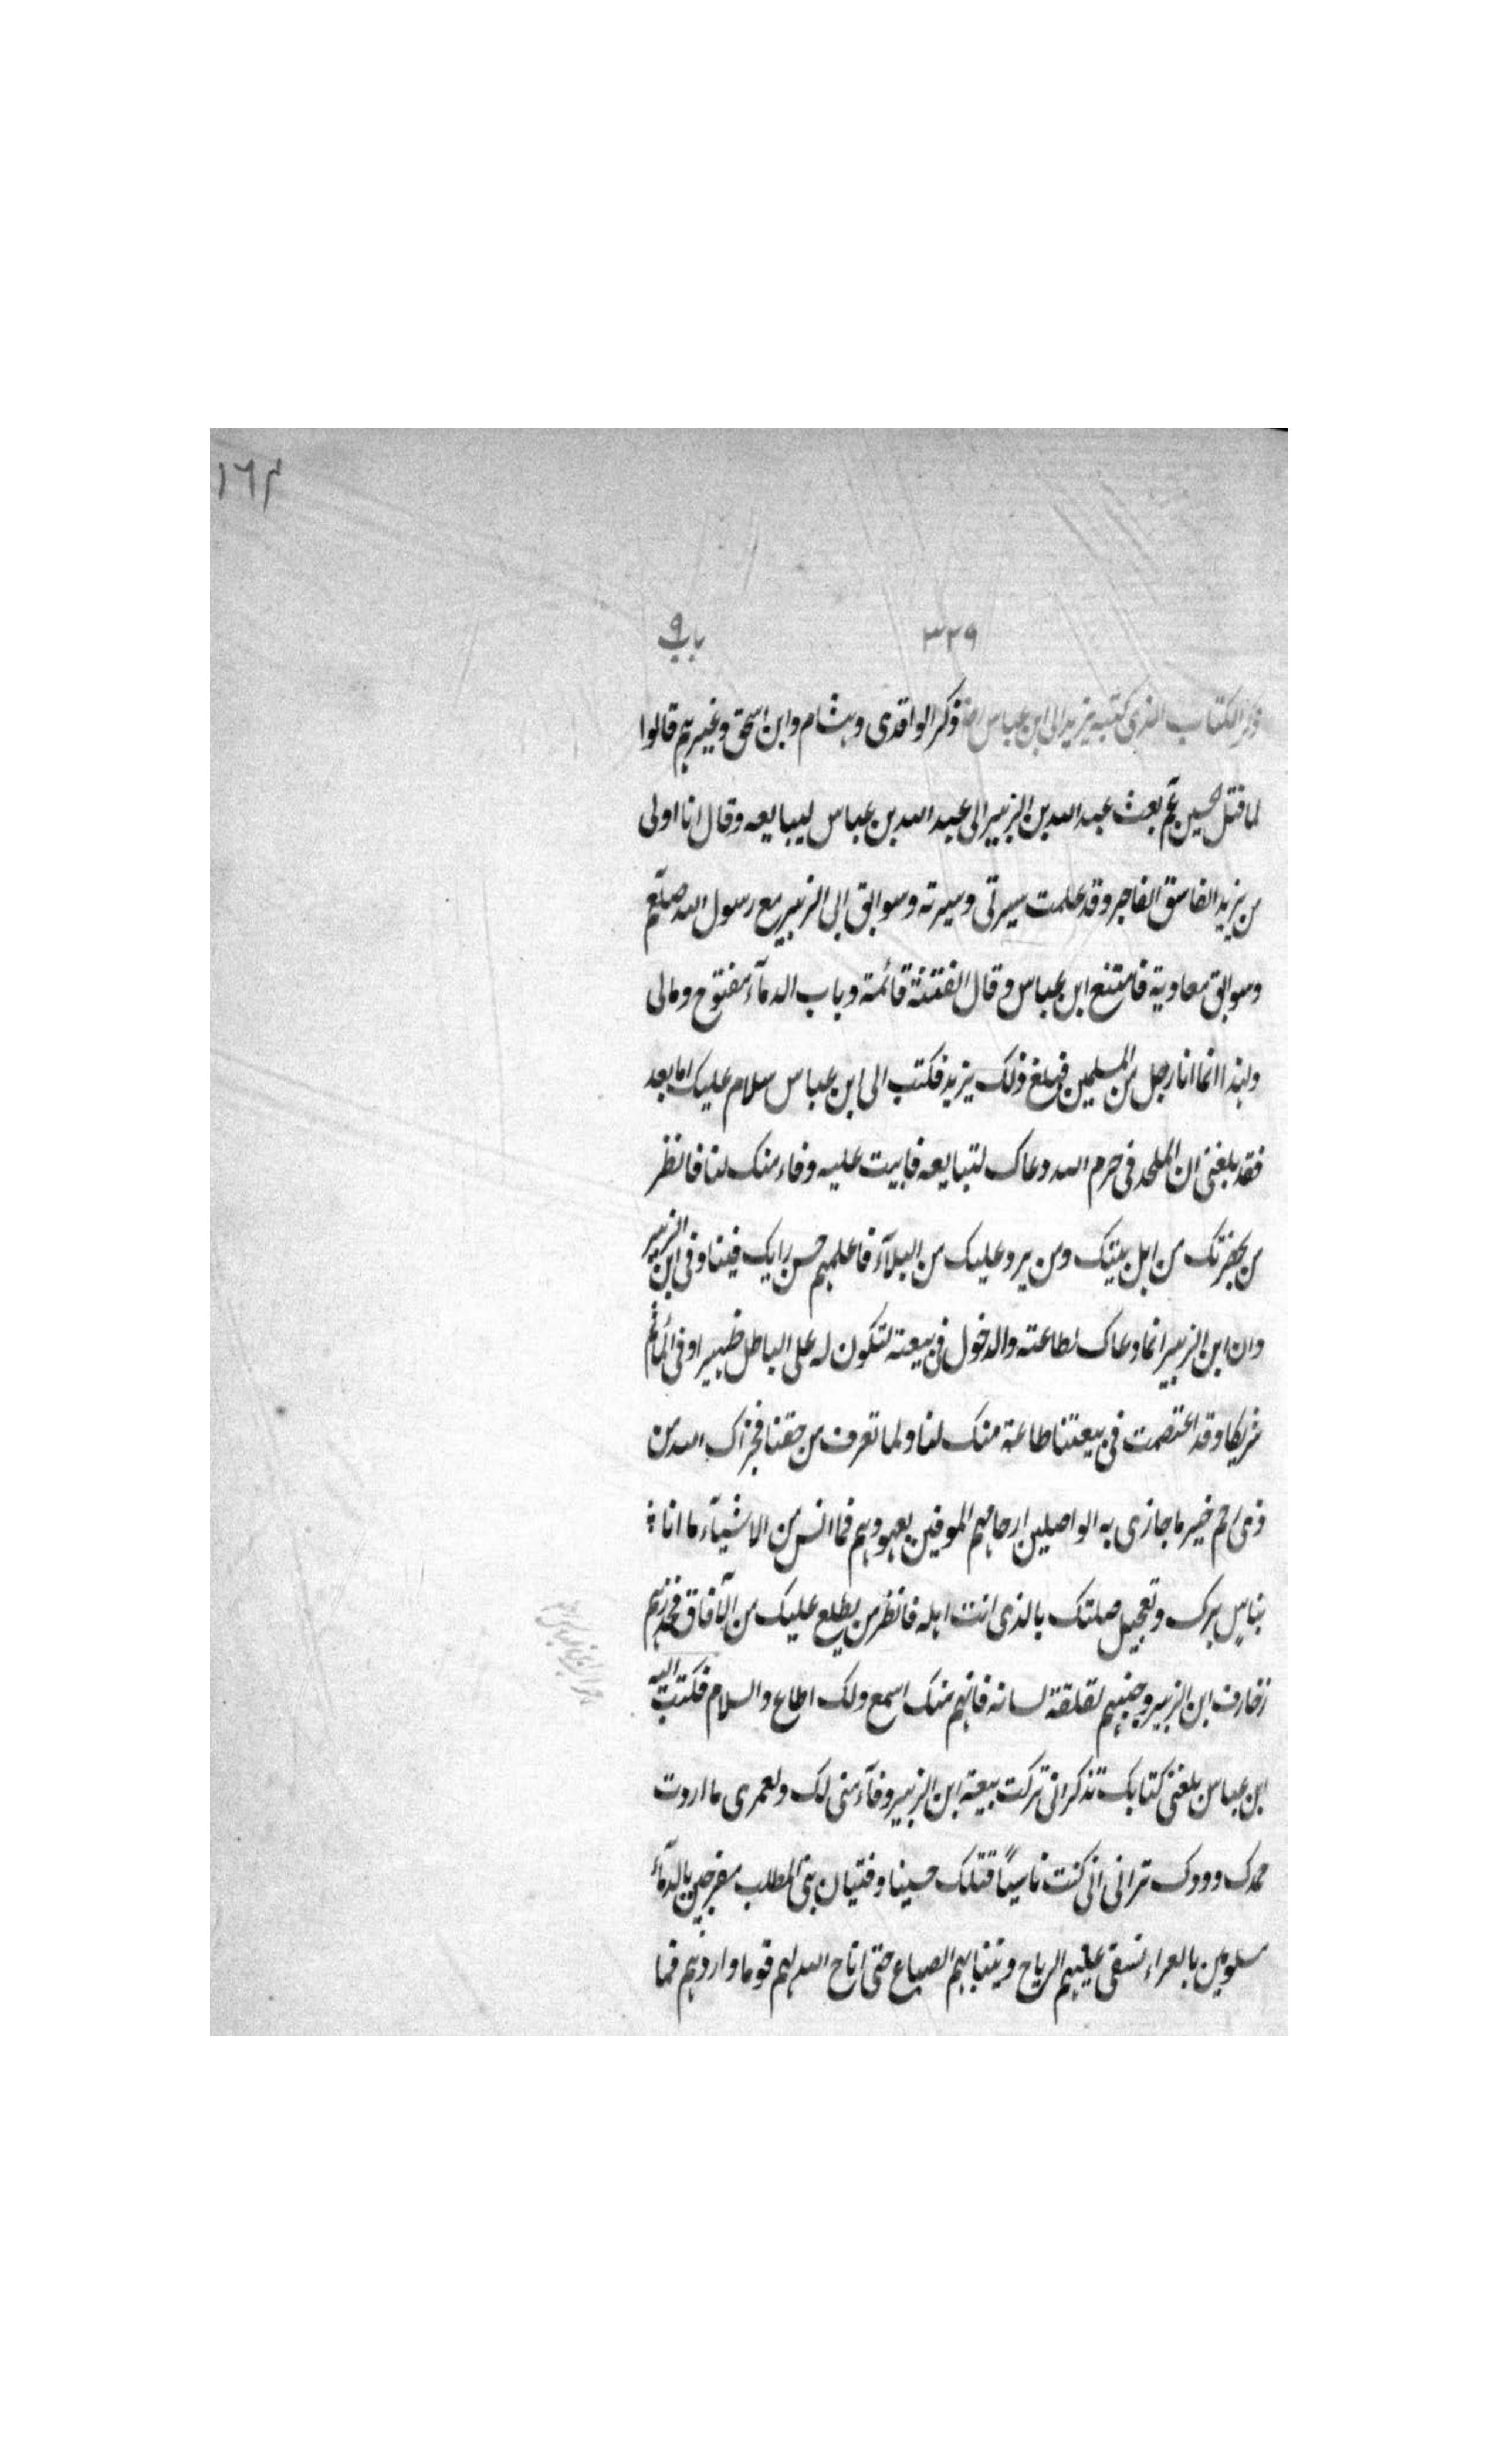 ١٦٣
٣٢٩ باب ٩
ذكر الكتاب الذى كتبه يزيد الى ابن عباس رضه ذكر الواقدى وهشام وابن اسحق وغيرهم قالوا
لما قتل الحسين عم بعث عبد الله بن الزبير الى عبد الله بن عباس ليبايعه وقال انا اولى
من يزيد الفاسق الفاجر وقد علمت سيرتى وسيرته وسوابق ابى الزبير مع رسول الله صلعم
وسوابق معاوية فامتنع ابن عباس وقال الفتنة قائمة وباب الدمآء مفتوح ومالى
ولهذا انما انا رجل من المسلمين فبلغ ذلك يزيد فكتب الى ابن عباس سلام عليك اما بعد
فقد بلغنى ان الملحد فى حرم الله دعاك لتبايعه فابيت عليه وفاء منك لنا فانظر
من بحضرتك من اهل بيتك ومن يرد عليك من البلآد فاعلمهم حسن رايك فينا وفى ابن الزبير
وان ابن الزبير انما دعاك لطاعته والدخول فى بيعته لتكون له على الباطل ظهيرا وفى المأثم
شريكا وقد اعتصمت فى بيعتنا طاعة منك لنا ولما تعرف من حقنا فجزاك الله من
ذى رحم خير ما جازى به الواصلين ارحامهم الموفين بعهودهم فما انس من الاشيآء ما انا
بناسٍ برك وتعجيل صلتك بالذى انت اهله فانظر من يطلع عليك من الآفاق فحذرهم
زخارف ابن الزبير وجنبهم لقلقة لسانه فانهم منك اسمع ولك اطاع والسلام فكتب اليه
ابن عباس بلغنى كتابك تذكر انى تركت بيعة ابن الزبير وفآء منى لك ولعمرى ما اردت
حمدك وودك ترانى انى كنت ناسيًا قتلك حسينا وفتيان بنى المطلب مضرجين بالدمآء
مسلوبين بالعراء تسفى عليهم الرياح وينتابهم الضباع حتى اتاح الله لهم قوما واروهم فما